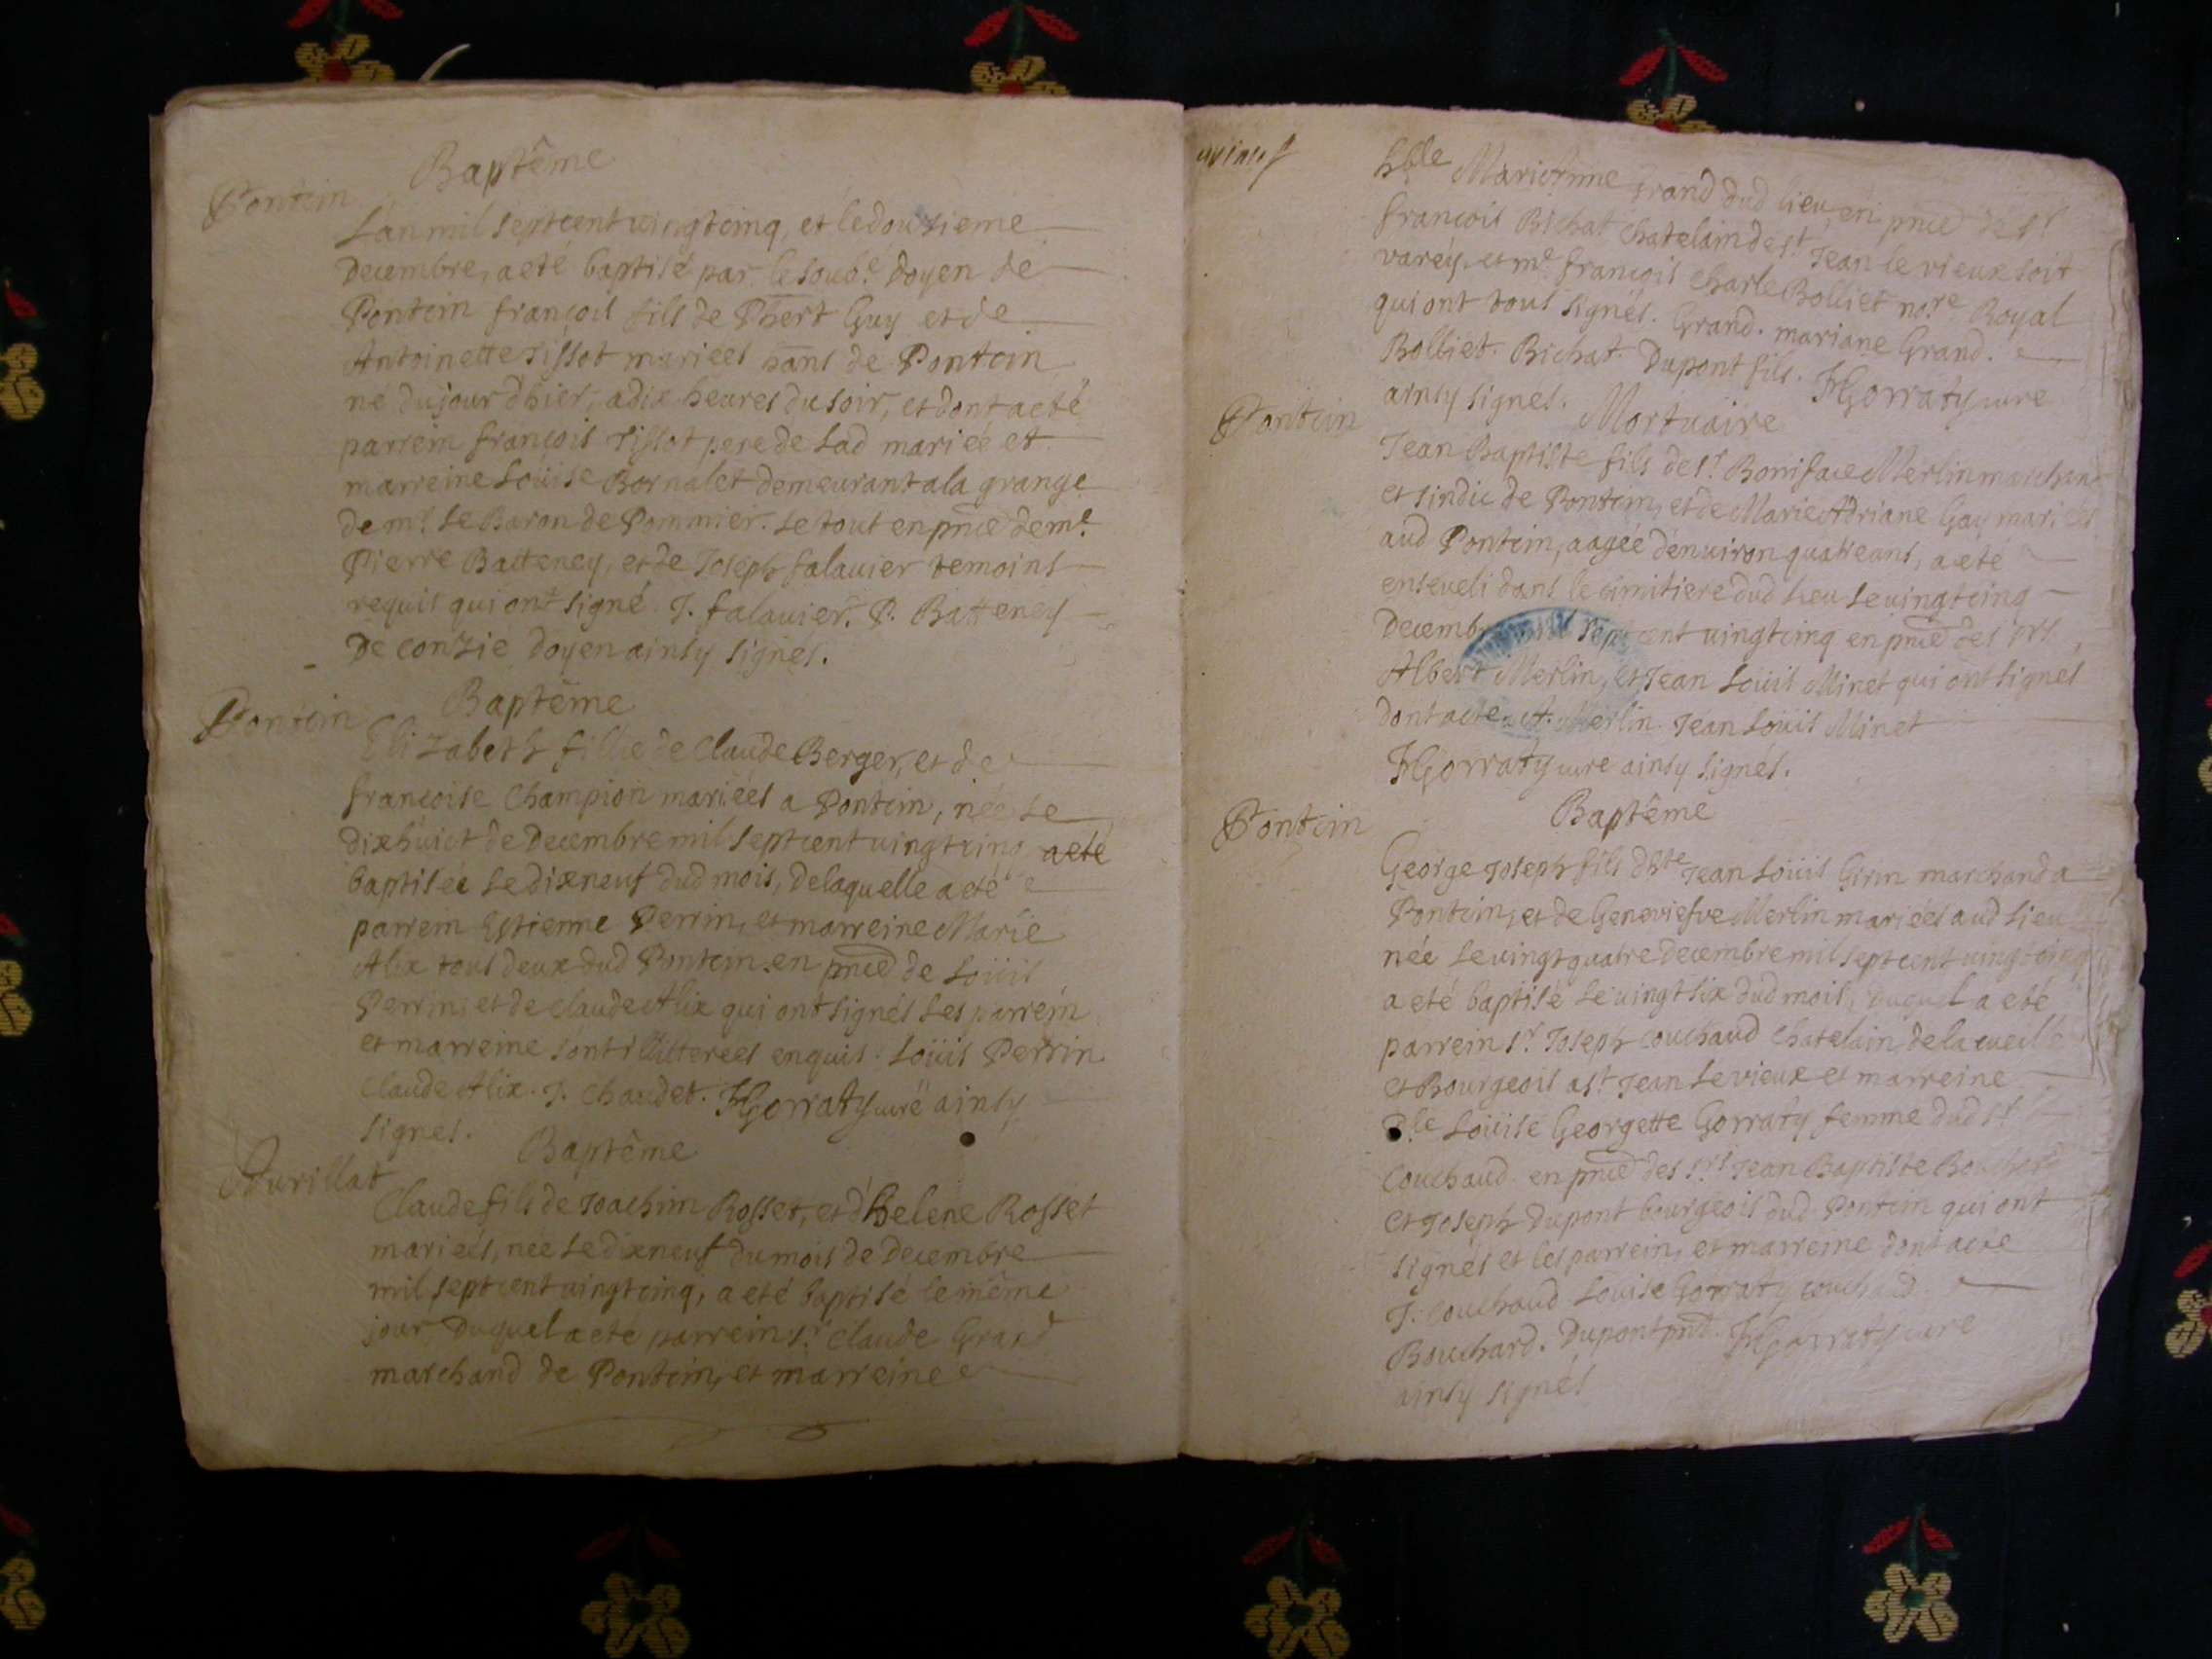 Baptême
Pontein
Lan mil sept cent vingt cinq, et le douzieme
Decembre, a eté baptisé par le soub.é Doyen de
Pontein françois fils de Phert Guy et de
Antoinette Tissot mariees hãns de Pontein
né du jour d'hier, a dix heures du soir, et dont a eté
parrein françois Tissot pere de Lad mariée et
marreine Loüise Bornalet demeurant a la grange
de mr. Le Baron de Pommier. Le tout en pnce de me.
Pierre Batteney, et de Joseph falavier temoins
requis qui ont signé J. falavier. P. Batteney
De Conzie Doyen ainsy signés.
Baptême
Pontein
Elizabeth fille de Claude Berger, et de
françoise Champion mariées a Pontein, née Le
dixhuict de Decembre mil sept cent vingt cinq a eté
baptisée Le dixneuf dud mois, de laquelle a eté
parrein Estienne Perrin, et marreine Marie
Alix tous deux dud Pontein en pnce de Loüis
Perrin, et de Claude Alix qui ont signés Les parrein
et marreine sont illitterees enquis. Loüis Perrin
Claude Alix. J. Chaudet. Gorraty curé ainsy
signes.
Baptême
Purillat
Claude fils de Joachim Rosset, et d'helene Rosset
mariées, née Le dixneuf du mois de Decembre
mil sept cent vingt cinq, a eté baptisé le même
jour Duquel a eté parrein sr. Claude Grand
marchand de Pontein, et marreine
hble Mariанne Grand dud lieu, en pnce de sr
françois Bichat Chatelain de st Jean le vieux soit
varéy, et me. françois Charle Bolliet nore. Royal
qui ont tous signés. Grand. mariane Grand.
Bolliet. Bichat. Dupont fils. Gorraty cure
ainsy signés.
Mortuaire
Pontein
Jean Baptiste fils de sr. Boniface Merlin marchand
et sindic de Pontein, et de Marie Adriane Guy mariés
aud Pontein, aagée denviron quatre ans, a eté
enseveli dans le cimitiere dud Lieu Le vingt cinq
Decembre mil sept cent vingt cinq en pnce des srs.
Albert Merlin, et Jean Loüis Minet qui ont signés
dont acte. A. Merlin. Jean Loüis Minet
Gorraty cure ainsy signés.
Baptême
Pontein
George Joseph fils dhte Jean Loüis Girin marchand a
Pontein, et de Geneviefve Merlin mariées aud Lieu
née Le vingt quatre Decembre mil sept cent vingt cinq
a eté baptisé Le vingt six dud mois, Duquel a eté
parrein sr. Joseph Couchaud Chatelain de la cueille
et Bourgeois a st Jean Le vieux et marreine
Dle Loüise Georgette Gorraty femme dud sr
Couchaud en pnce des srs Jean Baptiste Bouchard
et Joseph Dupont bourgeois dud Pontein qui ont
signés et les parrein, et marreine dont acte
J. Couchaud Louise Gorraty couchaud.
Bouchard. Dupont pnt. Gorraty cure
ainsy signés